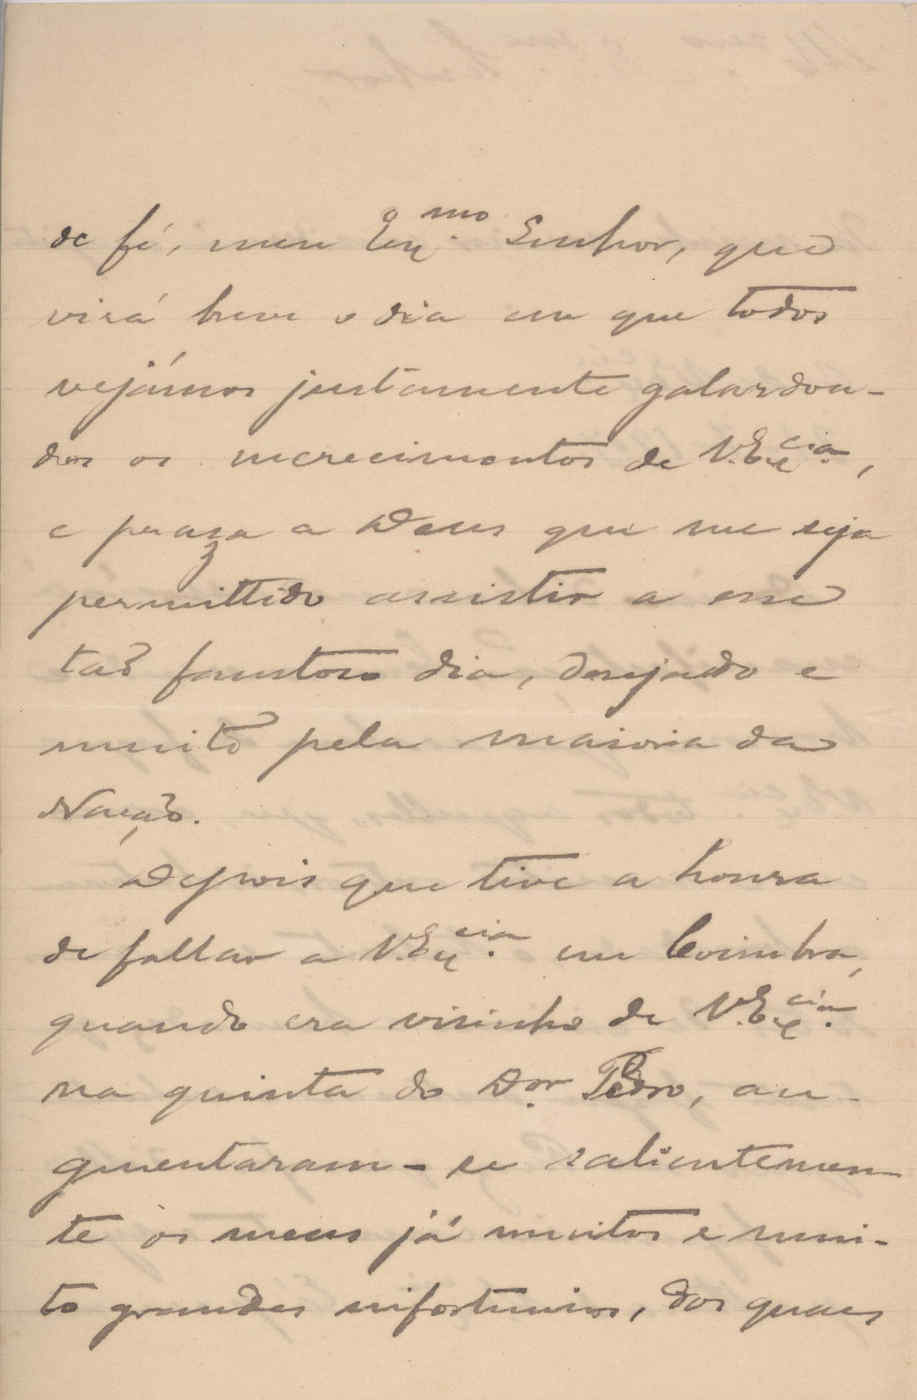 de fé, meu Ex.mo Senhor, que
virá breve o dia em que todos
vejâmos justamente galardoa-
dos os merecimentos de V. Ex.cia,
e praza a Deus que me seja
permittido assistir a esse
taõ faustoso dia, desejado e
muito pela maioria da
Naçaõ.
Depois que tive a honra
de fallar a V. Ex.cia em Coimbra,
quando era visinho de V. Ex.cia
na quinta do D.or Pedro, au-
gmentaram-se salientemen-
te os meus já muitos e mui-
to grandes infortunios, dos quaes